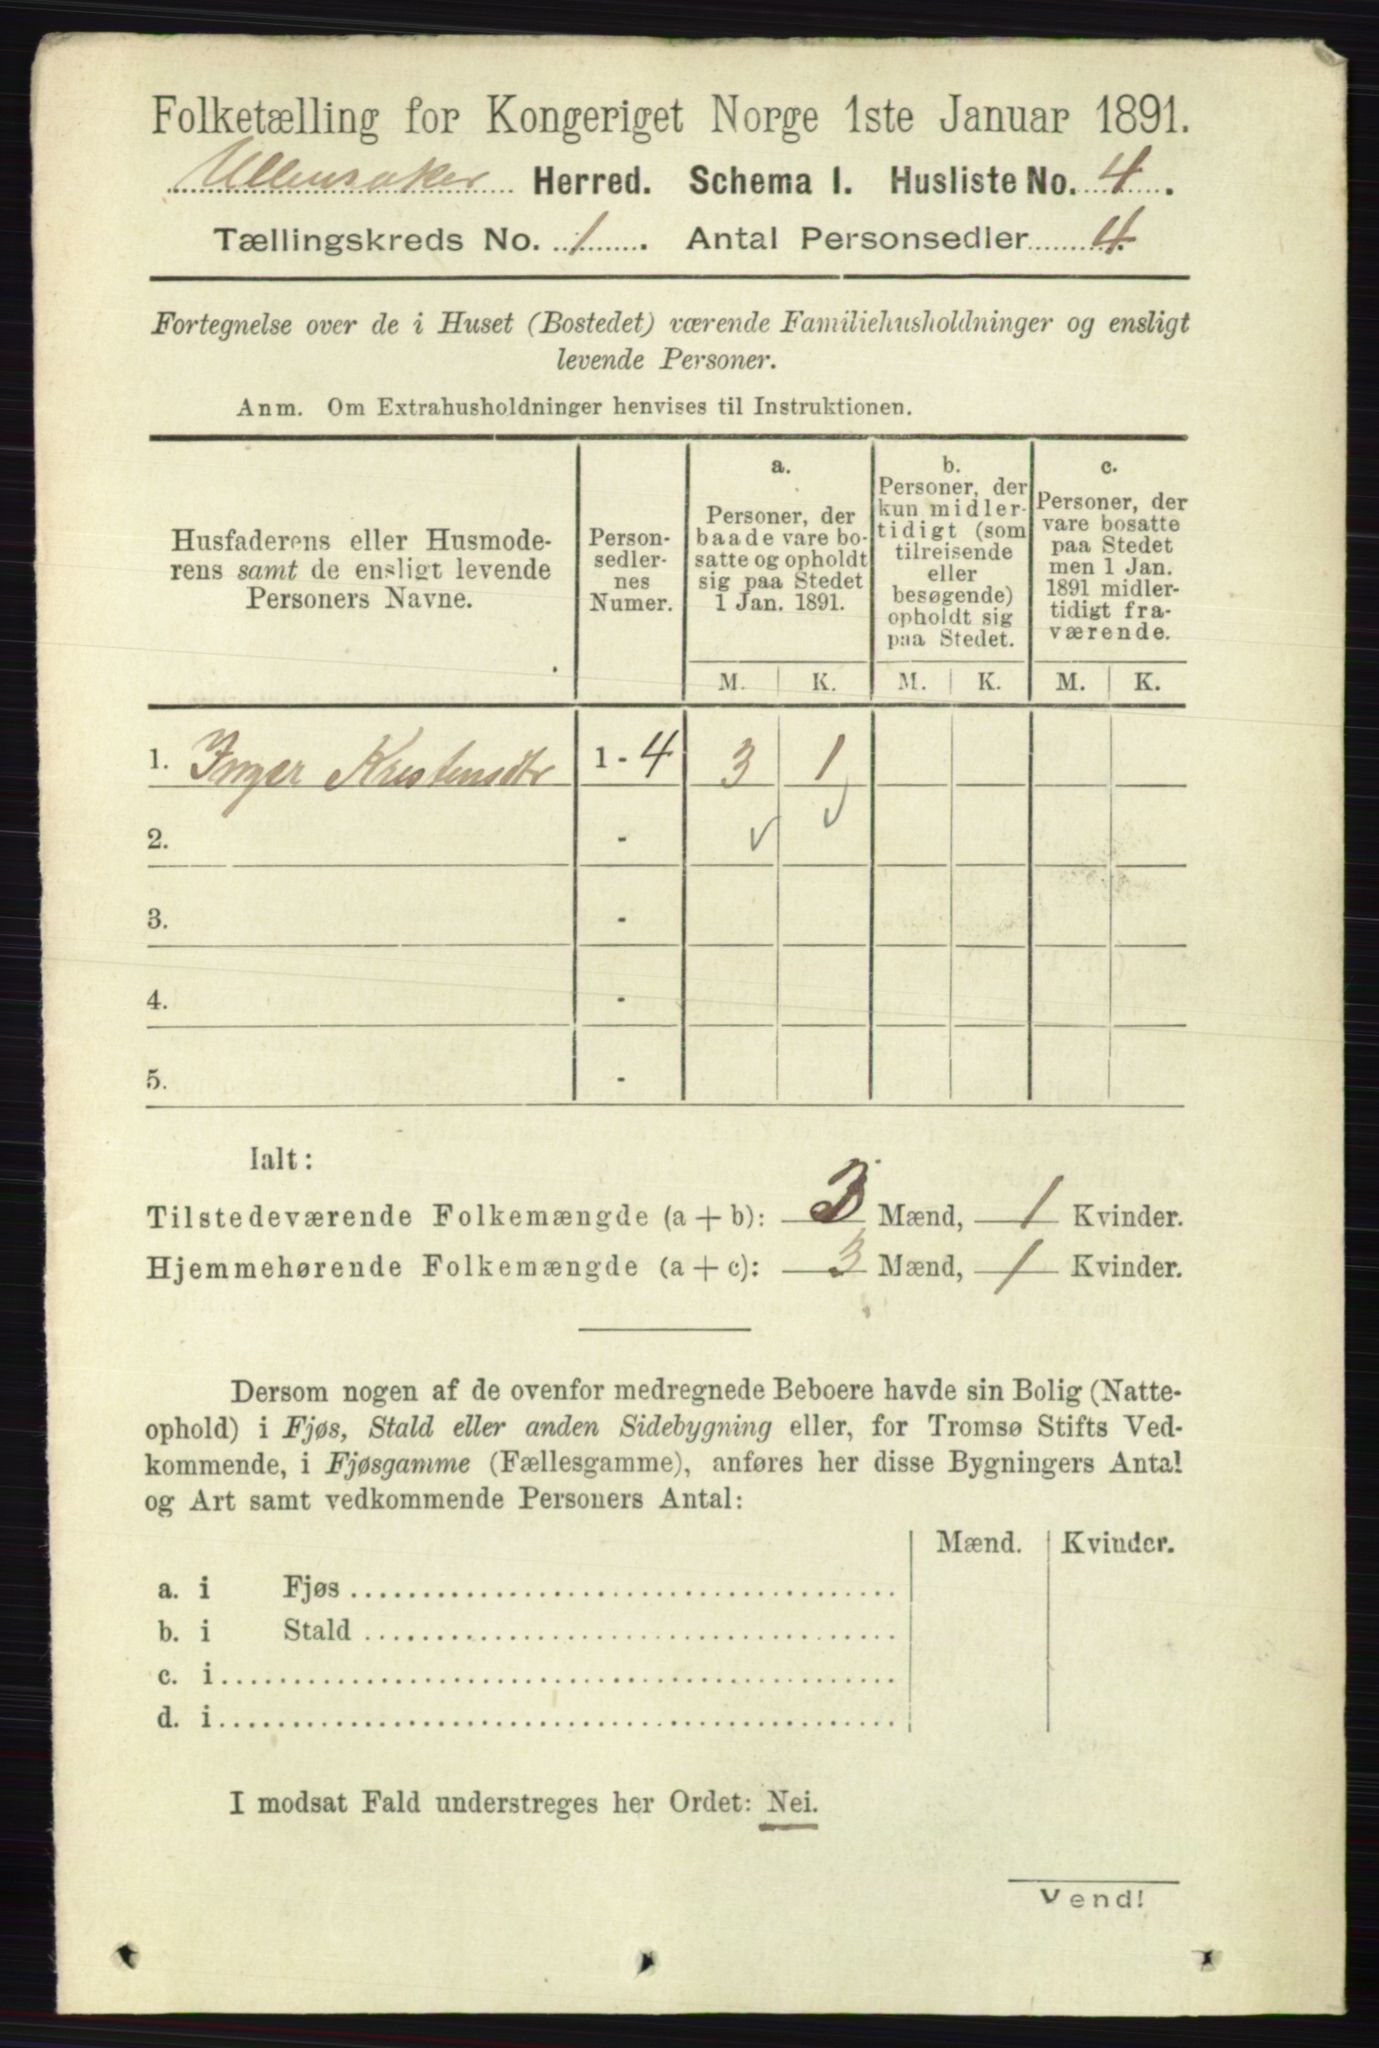 Folketælling for Kongeriget Norge 1ste Januar 1891.
Ullensaker Herred. Schema I. Husliste No. 4.
Tællingskreds No. 1. Antal Personsedler 4.
Fortegnelse over de i Huset (Bostedet) værende Familiehusholdninger og ensligt
levende Personer.
Anm. Om Extrahusholdninger henvises til Instruktionen.
Husfaderens eller Husmode-
rens samt de ensligt levende
Personers Navne.
Person-
sedler-
nes
Numer.
a.
Personer, der
baade vare bo-
satte og opholdt
sig paa Stedet
1 Jan. 1891.
b.
Personer, der
kun midler-
tidigt (som
tilreisende
eller
besøgende)
opholdt sig
paa Stedet.
c.
Personer, der
vare bosatte
paa Stedet
men 1 Jan.
1891 midler-
tidigt fra-
værende.
M. K. M. K. M. K.
1. Inger Kristensdtr 1 - 4 3 1
2. -
3. -
4. -
5. -
Ialt:
Tilstedeværende Folkemængde (a + b): 3 Mænd, 1 Kvinder.
Hjemmehørende Folkemængde (a + c): 3 Mænd, 1 Kvinder.
Dersom nogen af de ovenfor medregnede Beboere havde sin Bolig (Natte-
ophold) i Fjøs, Stald eller anden Sidebygning eller, for Tromsø Stifts Ved-
kommende, i Fjøsgamme (Fællesgamme), anføres her disse Bygningers Antal
og Art samt vedkommende Personers Antal:
Mænd. Kvinder.
a. i Fjøs
b. i Stald
c. i
d. i
I modsat Fald understreges her Ordet: Nei.
Vend!